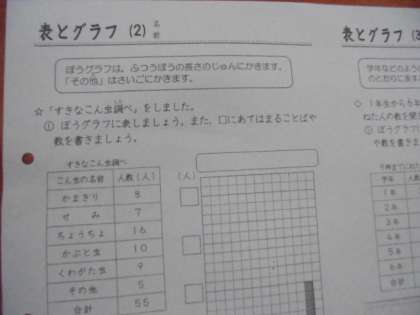 表とグラフ (2) 名前
ぼうグラフは、ふつうぼうの長さのじゅんにかきます。
「その他」はさいごにかきます。
☆「すきなこん虫調べ」をしました。
① ぼうグラフに表しましょう。また、□にあてはまることばや
数を書きましょう。
すきなこん虫調べ
こん虫の名前 人数(人)
かまきり 8
せみ 7
ちょうちょ 16
かぶと虫 10
くわがた虫 9
その他 5
合計 55
(人)
表とグラフ (3
学年などのよう
のとおりに書きま
◇ 1年生から6年
① ぼうグラフ
や数を書きま
学年 人
1年
2年
3年
4年
5年
6年
合計